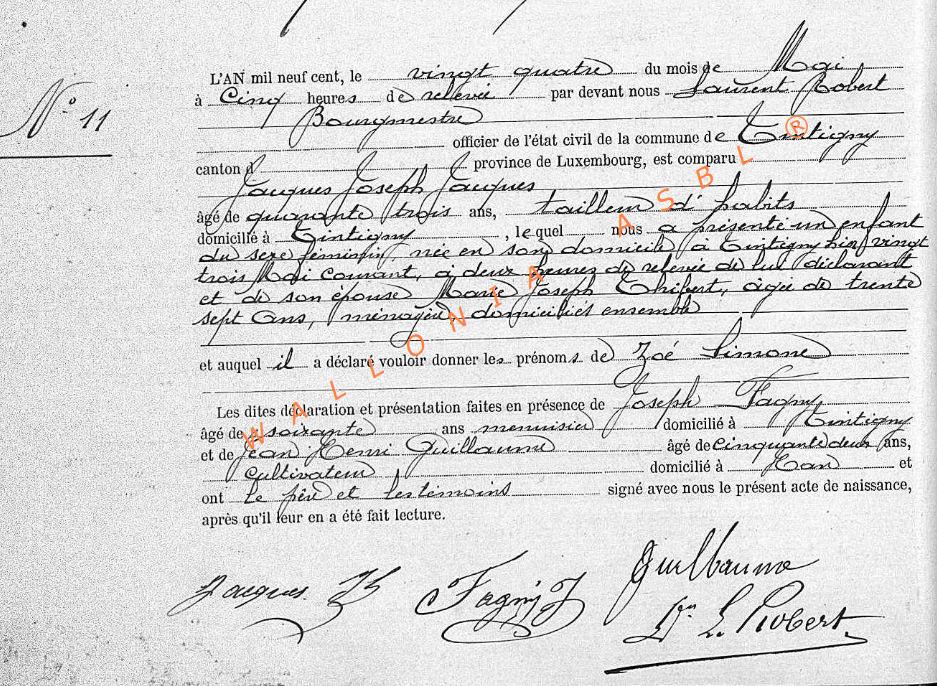 N° 11
L'AN mil neuf cent, le vingt quatre du mois de Mai
à Cinq heures de relevée par devant nous Laurent Robert
Bourgmestre
officier de l'état civil de la commune de Tintigny
canton d province de Luxembourg, est comparu
Jacques Joseph Jacques
âgé de quarante trois ans, tailleur d'habits
domicilié à Tintigny, lequel nous a présenté un enfant
du sexe féminin, née en son domicile à Tintigny hier vingt
trois Mai courant, à deux heures de relevée de lui déclarant
et de son épouse Marie Joseph Thibert, agée de trente
sept ans, ménagère domiciliés ensemble
et auquel il a déclaré vouloir donner les prénoms de Zoé Simone
Les dites déclaration et présentation faites en présence de Joseph Fagny
âgé de soixante ans menuisier domicilié à Tintigny
et de Jean Henri Guillaume âgé de cinquante deux ans,
cultivateur domicilié à Han et
ont le père et les témoins signé avec nous le présent acte de naissance,
après qu'il leur en a été fait lecture.
Jacques JJ Fagny J Guillaume
L. Robert
WALLONIA ASBL ®